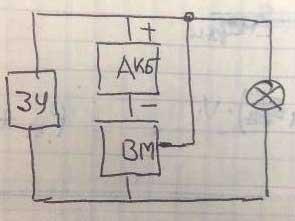 +
АКБ
ЗУ
−
ВМ